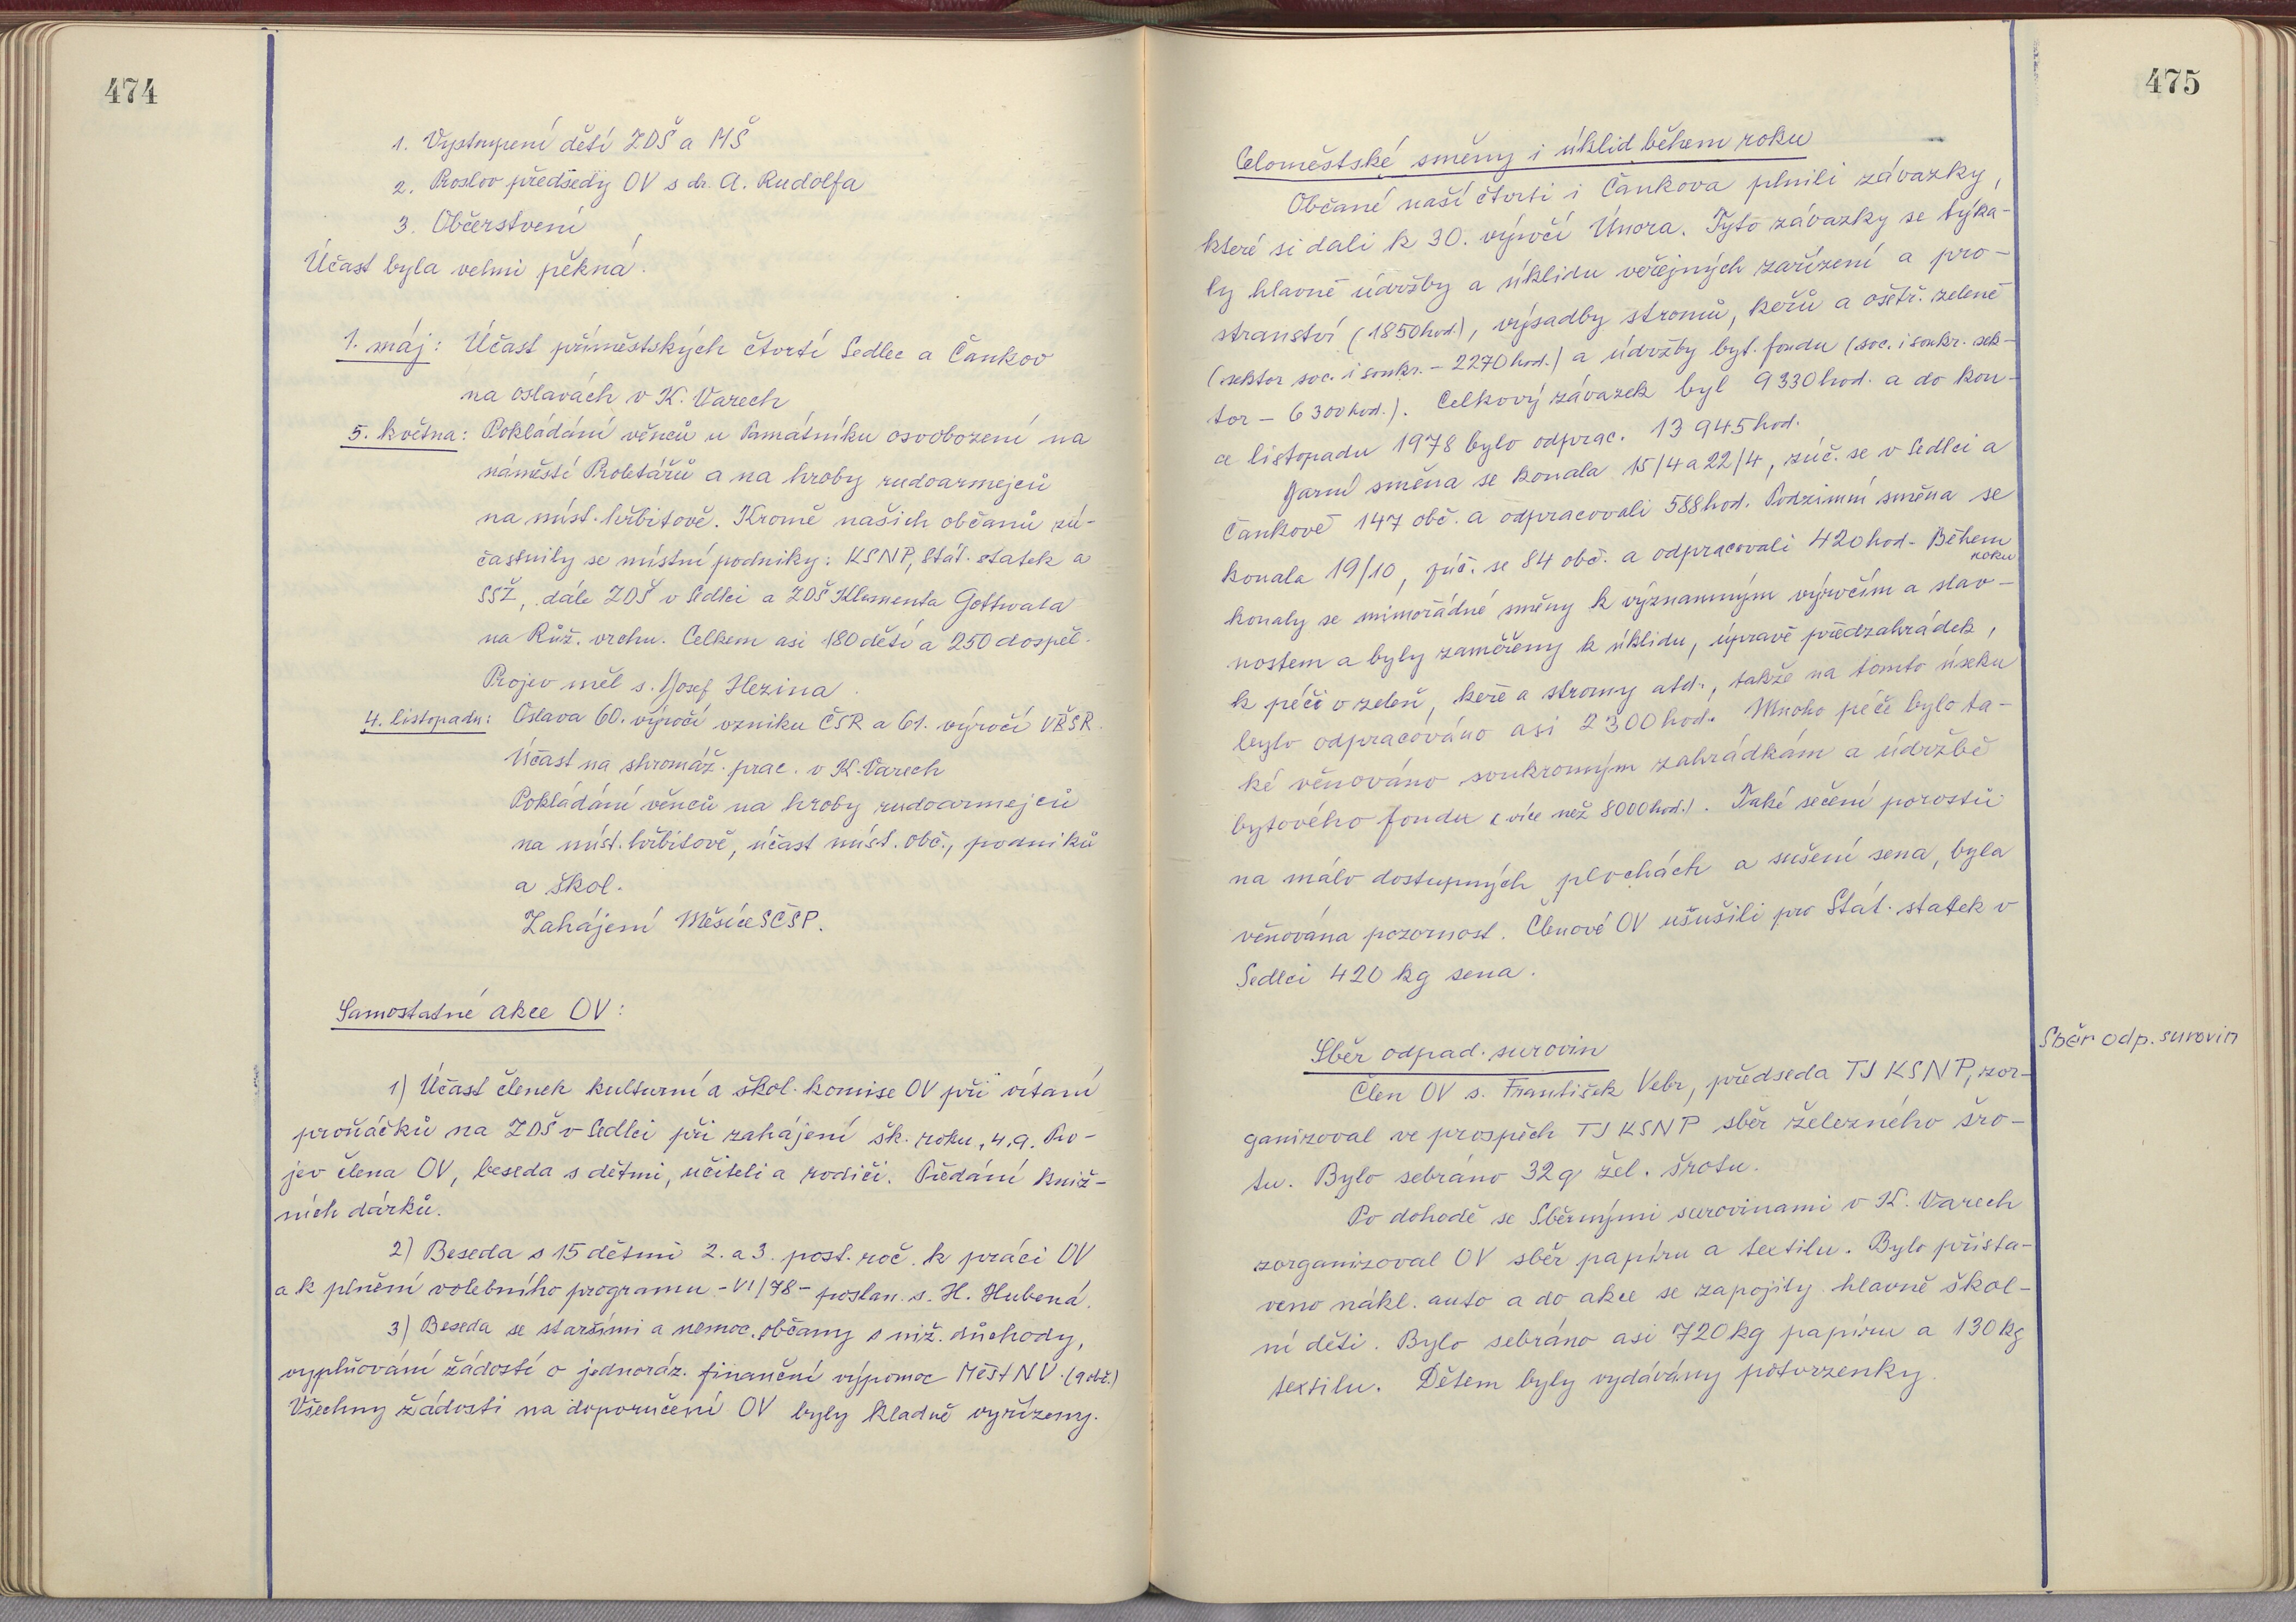 474
1. Vystoupení dětí ZDŠ a MŠ
2. Proslov předsedy OV s dr. A. Rudolfa
3. Občerstvení
Účast byla velmi pěkná.
1. máj: Účast příměstských čtvrtí Sedlec a Čankov
na oslavách v K. Varech
5. května: Pokládání věnců u Památníku osvobození na
náměstí Proletářů a na hroby rudoarmejců
na míst. hřbitově. Kromě našich občanů zú-
častnily se místní podniky: KSNP, Stát. statek a
SSŽ, dále ZDŠ v Sedlci a ZDŠ Klementa Gottwala
na Růž. vrchu. Celkem asi 180 dětí a 250 dospěl.
Projev měl s. Josef Hezina.
4. listopadu: Oslava 60. výročí vzniku ČSR a 61. výročí VŘSR.
Účast na shromáž. prac. v K. Varech
Pokládání věnců na hroby rudoarmejců
na míst. hřbitově, účast míst. obč., podniků
a škol.
Zahájení Měsíce SČSP.
Samostatné akce OV:
1) Účast členek kulturní a škol. komise OV při vítání
prvňáčků na ZDŠ v Sedlci při zahájení šk. roku, 4.9. Pro-
jev člena OV, beseda s dětmi, učiteli a rodiči. Předání kniž-
ních dárků.
2) Beseda s 15 dětmi 2. a 3. post. roč. k práci OV
a k plnění volebního programu - VI/78 - poslan. s. H. Hubená.
3) Beseda se staršími a nemoc. občany s niž. důchody,
vyplňování žádostí o jednoráz. finanční výpomoc MěstNV. (9 obč.)
Všechny žádosti na doporučení OV byly kladně vyřízeny.
475
Celoměstské směny i úklid během roku
Občané naší čtvrti i Čankova plnili závazky,
které si dali k 30. výročí Února. Tyto závazky se týka-
ly hlavně údržby a úklidu veřejných zařízení a pro-
stranství (1850 hod.), výsadby stromů, keřů a ošetř. zeleně
(sektor soc. i soukr. - 2270 hod.) a údržby byt. fondu (soc. i soukr. sek-
tor - 6300 hod.). Celkový závazek byl 9330 hod. a do kon-
ce listopadu 1978 bylo odprac. 13 945 hod.
Jarní směna se konala 15/4 a 22/4, zúč. se v Sedlci a
Čankově 147 obč. a odpracovali 588 hod. Podzimní směna se
konala 19/10, zúč. se 84 obč. a odpracovali 420 hod. Během
roku
konaly se mimořádné směny k významným výročím a slav-
nostem a byly zaměřeny k úklidu, úpravě předzahrádek,
k péči o zeleň, keře a stromy atd., takže na tomto úseku
bylo odpracováno asi 2300 hod. Mnoho péče bylo ta-
ké věnováno soukromým zahrádkám a údržbě
bytového fondu (více než 8000 hod.). Také sečení porostů
na málo dostupných plochách a sušení sena, byla
věnována pozornost. Členové OV usušili pro Stát. statek v
Sedlci 420 kg sena.
Sběr odpad. surovin
Sběr odp. surovin
Člen OV s. František Vebr, předseda TJ KSNP, zor-
ganizoval ve prospěch TJ KSNP sběr železného šro-
tu. Bylo sebráno 32 q žel. šrotu.
Po dohodě se Sběrnými surovinami v K. Varech
zorganizoval OV sběr papíru a textilu. Bylo přista-
veno nákl. auto a do akce se zapojily hlavně škol-
ní děti. Bylo sebráno asi 720 kg papíru a 130 kg
textilu. Dětem byly vydávány potvrzenky.